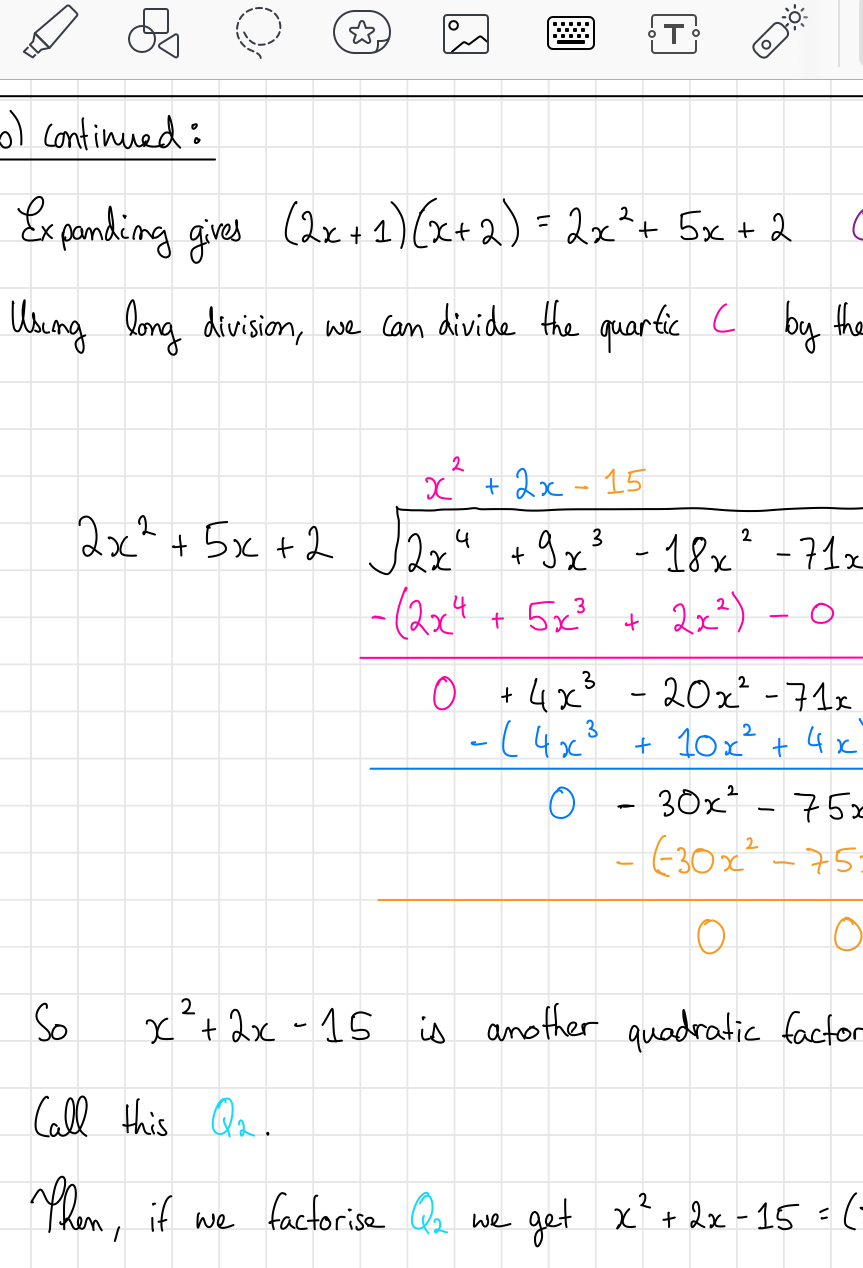 b) continued:
Expanding gives (2x+1)(x+2) = 2x² + 5x + 2 (
Using long division, we can divide the quartic C by the
x² + 2x - 15
2x² + 5x + 2 √2x⁴ + 9x³ - 18x² - 71x
-(2x⁴ + 5x³ + 2x²) - 0
0 + 4x³ - 20x² - 71x
-(4x³ + 10x² + 4x)
0 - 30x² - 75x
-(-30x² - 75x
0 0
So x² + 2x - 15 is another quadratic factor
Call this Q₂.
Then, if we factorise Q₂ we get x² + 2x - 15 = (